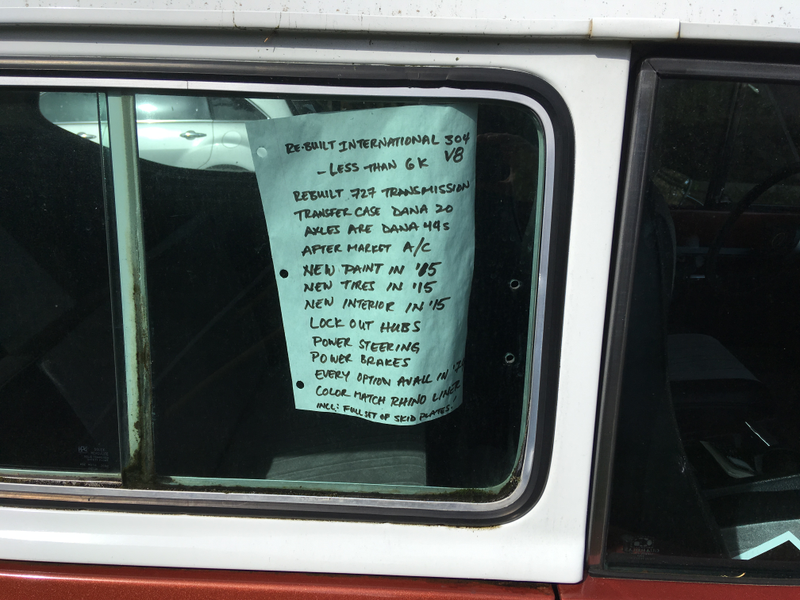 RE-BUILT INTERNATIONAL 304
V8
- LESS THAN 6K
REBUILT 727 TRANSMISSION
TRANSFER CASE DANA 20
AXLES ARE DANA 44s
AFTER MARKET A/C
NEW PAINT IN '05
NEW TIRES IN '15
NEW INTERIOR IN '15
LOCK OUT HUBS
POWER STEERING
POWER BRAKES
EVERY OPTION AVAIL IN
COLOR MATCH RHINO LINER
INCL: FULL SET OF SKID PLATES!